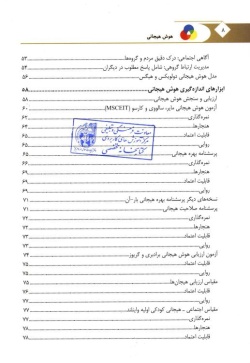 ۸ هوش هیجانی
آگاهی اجتماعی: درک دقیق مردم و گروه‌ها ۵۳
مدیریت ارتباط گروهی: شامل پاسخ مطلوب در دیگران ۵۴
مدل هوش هیجانی دولویکس و هیگس ۵۶
ابزارهای اندازه‌گیری هوش هیجانی ۵۸
ارزیابی و سنجش هوش هیجانی
آزمون هوش هیجانی مایر، سالووی و کارسو (MSCEIT)
نمره‌گذاری
هنجارها
قابلیت اعتماد
روایی
پرسشنامه بهره هیجانی
نمره‌گذاری
هنجارها
قابلیت اعتماد ۶۹
روایی
نسخه‌های دیگر پرسشنامه بهره هیجانی بار-آن ۷۱
پرسشنامه صلاحیت هیجانی ۷۱
نمره‌گذاری
هنجارها
قابلیت اعتماد
روایی
آزمون ارزیابی هوش هیجانی برادبری و گریوز
قابلیت اعتماد
روایی
مقیاس ارزیابی هیجان‌ها ۷۵
قابلیت اعتماد
روایی
مقیاس اجتماعی ـ هیجانی کودکی اولیه واینلند ۷۷
نمره‌گذاری
هنجارها ۷۸
قابلیت اعتماد ۷۸